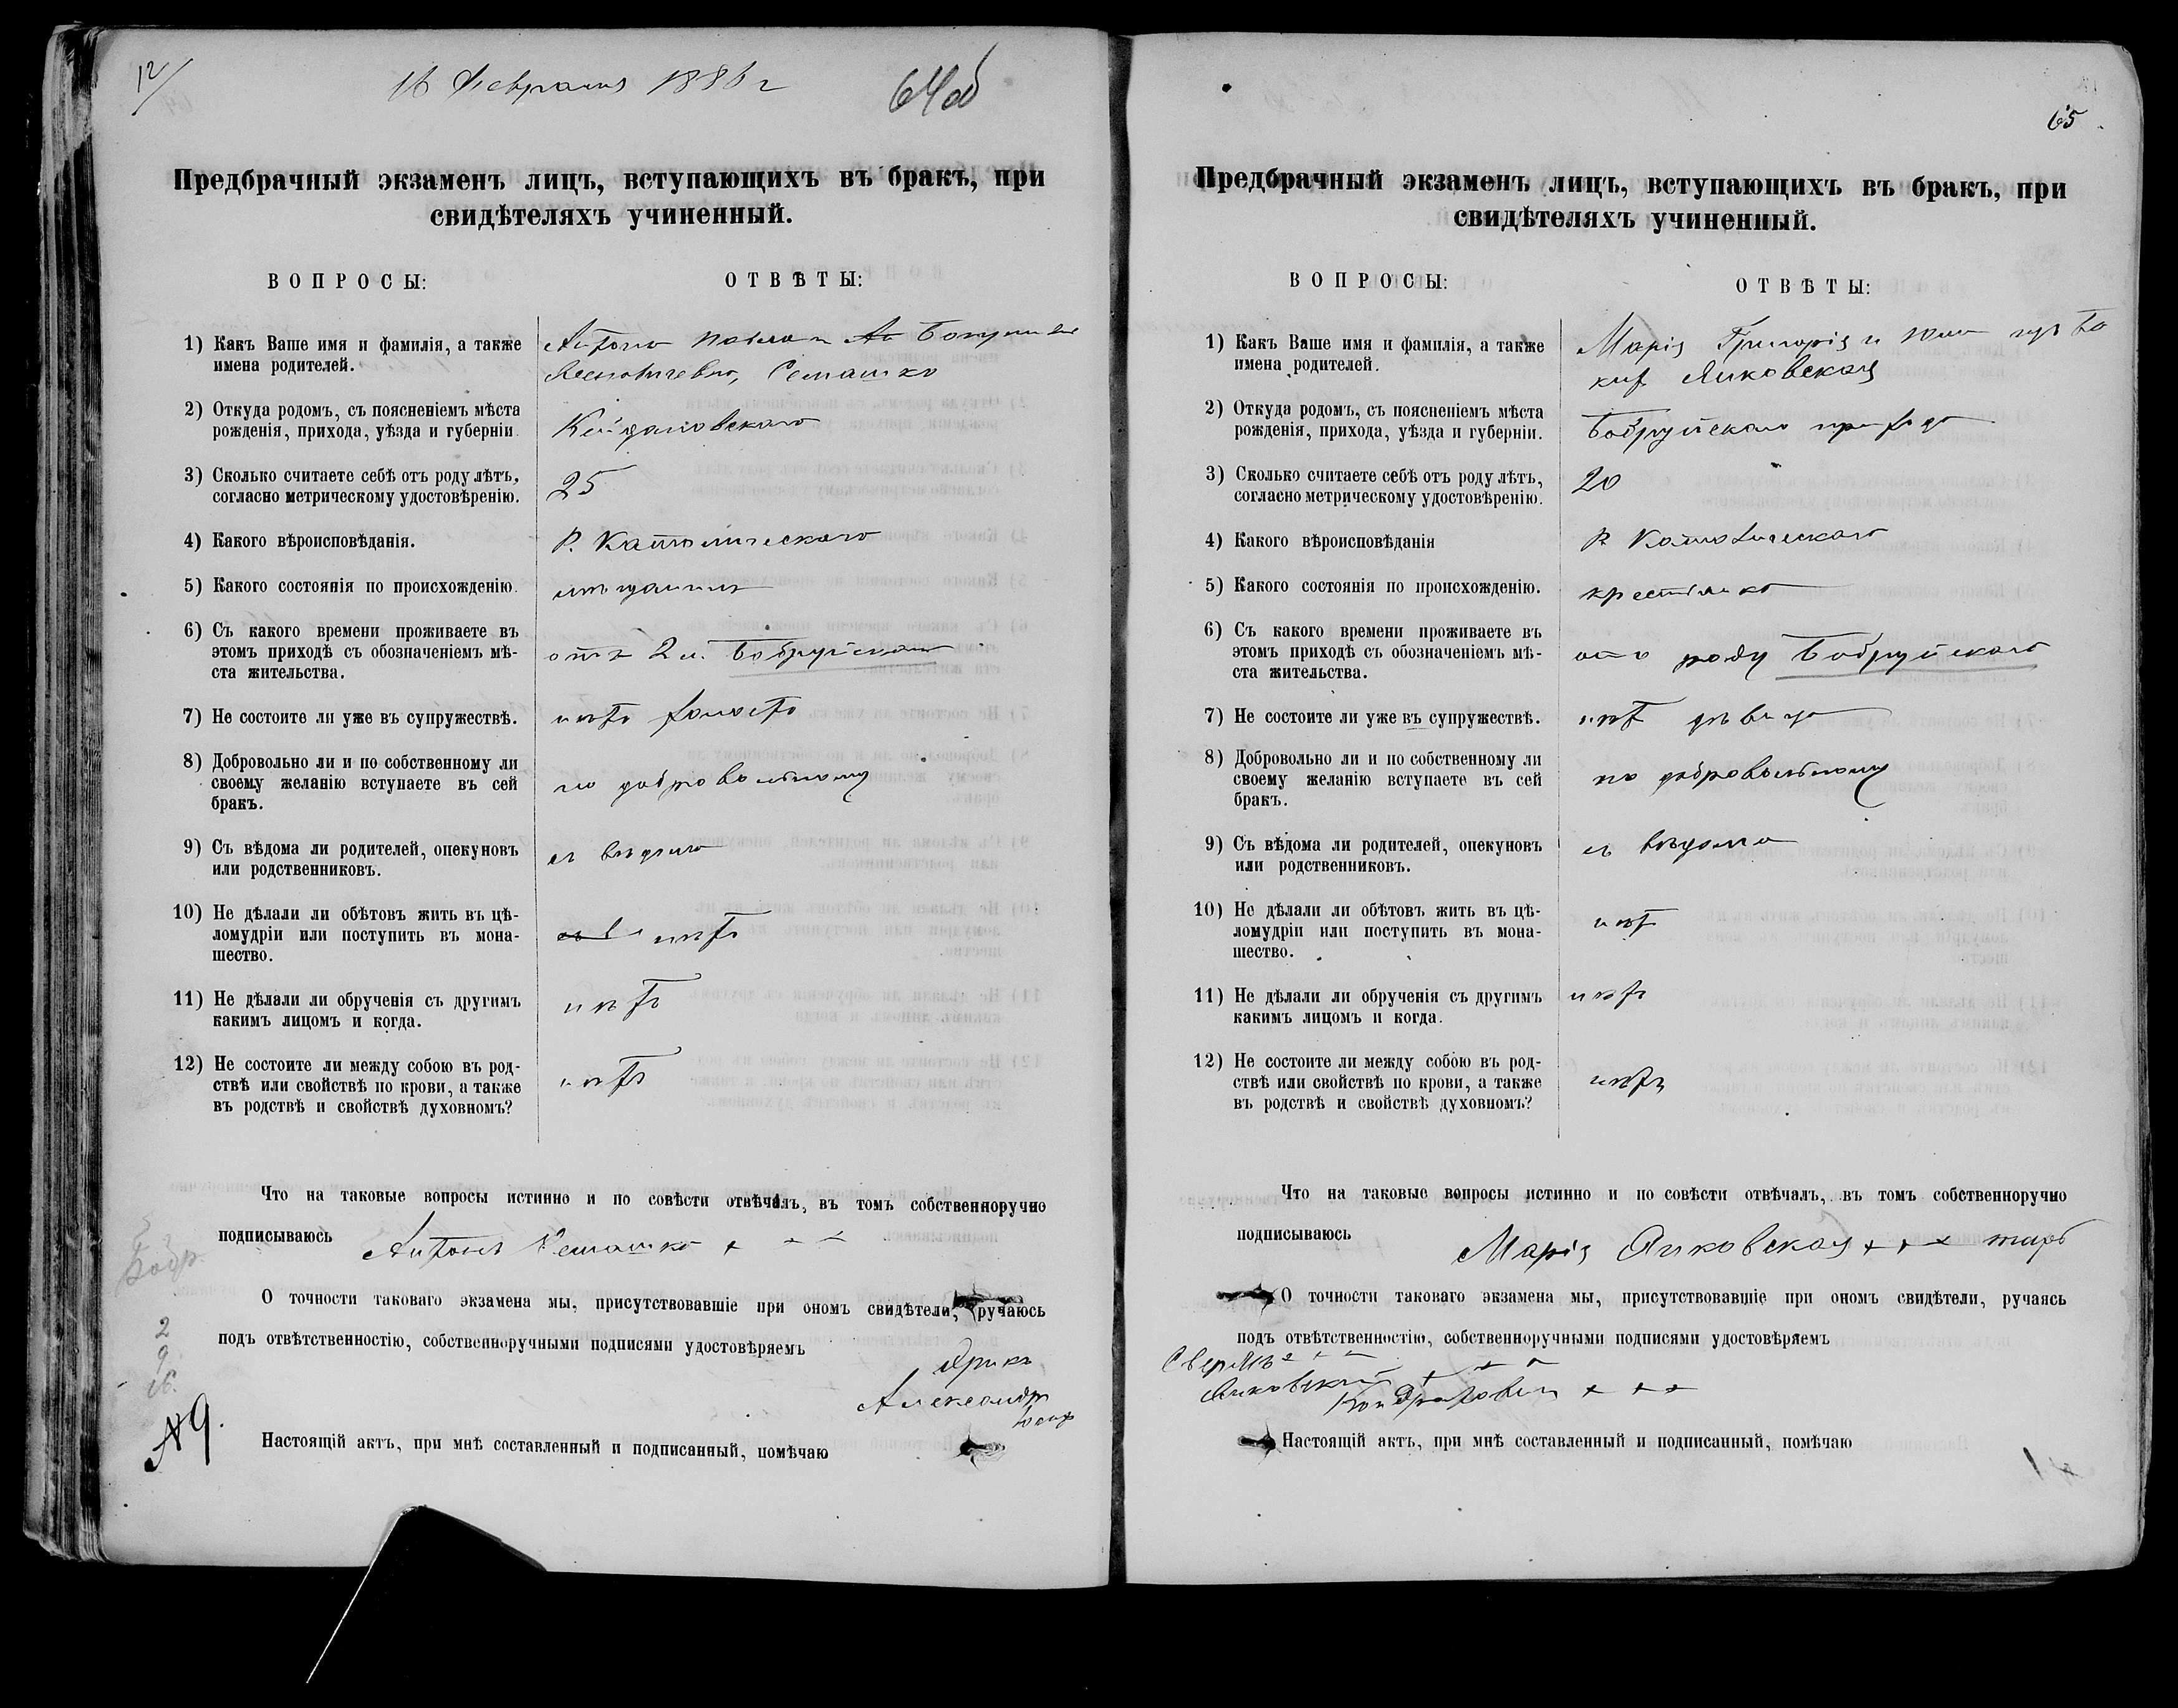 12/
16 Февраля 1886 г
64 об
Предбрачный экзаменъ лицъ, вступающихъ въ бракъ, при
свидѣтеляхъ учиненный.
ВОПРОСЫ:
ОТВѢТЫ:
1) Какъ Ваше имя и фамилія, а также
имена родителей.
Антонъ
Семашко
2) Откуда родомъ, съ поясненіемъ мѣста
рожденія, прихода, уѣзда и губерніи.
Койдановскаго
3) Сколько считаете себѣ отъ роду лѣтъ,
согласно метрическому удостовѣренію.
25
4) Какого вѣроисповѣданія.
Р. Католическаго
5) Какого состоянія по происхожденію.
мѣщанинъ
6) Съ какого времени проживаете въ
этомъ приходѣ съ обозначеніемъ мѣ-
ста жительства.
отъ 2 л. Бобруйскаго
7) Не состоите ли уже въ супружествѣ.
нѣтъ холостъ
8) Добровольно ли и по собственному ли
своему желанію вступаете въ сей
бракъ.
по добровольному
9) Съ вѣдома ли родителей, опекуновъ
или родственниковъ.
съ вѣдома
10) Не дѣлали ли обѣтовъ жить въ цѣ-
ломудріи или поступить въ мона-
шество.
нѣтъ
11) Не дѣлали ли обрученія съ другимъ
какимъ лицомъ и когда.
нѣтъ
12) Не состоите ли между собою въ род-
ствѣ или свойствѣ по крови, а также
въ родствѣ и свойствѣ духовномъ?
нѣтъ
Что на таковые вопросы истинно и по совѣсти отвѣчалъ, въ томъ собственноручно
подписываюсь Антонъ Семашко + + +
О точности таковаго экзамена мы, присутствовавшіе при ономъ свидѣтели, ручаюсь
подъ отвѣтственностію, собственноручными подписями удостовѣряемъ
Александръ
Бобр.
2
9
№ 9.
Настоящій актъ, при мнѣ составленный и подписанный, помѣчаю
65
Предбрачный экзаменъ лицъ, вступающихъ въ бракъ, при
свидѣтеляхъ учиненный.
ВОПРОСЫ:
ОТВѢТЫ:
1) Какъ Ваше имя и фамилія, а также
имена родителей.
Марія Григорія и
Янковская
2) Откуда родомъ, съ поясненіемъ мѣста
рожденія, прихода, уѣзда и губерніи.
Бобруйскаго прихода
3) Сколько считаете себѣ отъ роду лѣтъ,
согласно метрическому удостовѣренію.
20
4) Какого вѣроисповѣданія
Р. Католическаго
5) Какого состоянія по происхожденію.
крестьянка
6) Съ какого времени проживаете въ
этомъ приходѣ съ обозначеніемъ мѣ-
ста жительства.
отъ роду Бобруйскаго
7) Не состоите ли уже въ супружествѣ.
нѣтъ дѣвица
8) Добровольно ли и по собственному ли
своему желанію вступаете въ сей
бракъ.
по добровольному
9) Съ вѣдома ли родителей, опекуновъ
или родственниковъ.
съ вѣдома
10) Не дѣлали ли обѣтовъ жить въ цѣ-
ломудріи или поступить въ мона-
шество.
нѣтъ
11) Не дѣлали ли обрученія съ другимъ
какимъ лицомъ и когда.
нѣтъ
12) Не состоите ли между собою въ род-
ствѣ или свойствѣ по крови, а также
въ родствѣ и свойствѣ духовномъ?
нѣтъ
Что на таковые вопросы истинно и по совѣсти отвѣчалъ, въ томъ собственноручно
подписываюсь Марія Янковская + + +
О точности таковаго экзамена мы, присутствовавшіе при ономъ свидѣтели, ручаясь
подъ отвѣтственностію, собственноручными подписями удостовѣряемъ
Янковскій + + +
Кондратовичъ + + +
Настоящій актъ, при мнѣ составленный и подписанный, помѣчаю